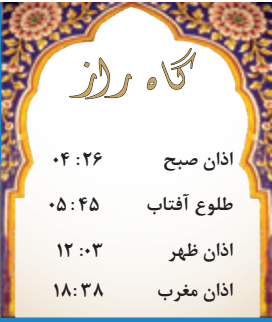 گاه راز
اذان صبح ۰۴:۲۶
طلوع آفتاب ۰۵:۴۵
اذان ظهر ۱۲:۰۳
اذان مغرب ۱۸:۳۸